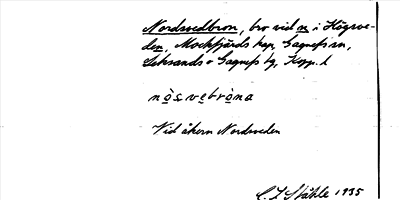 Nordsvedbron, bro vid m i Högsve-
den, Mockfjärds kap, Gagnefs sn,
Leksands o Gagnefs tg, Kopp. l
nǫ̀svebrǫ̀na
Vid åkern Nordsveden
C. I. Ståhle 1935